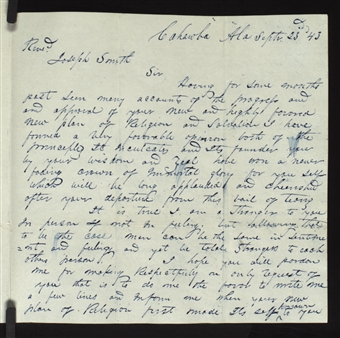 Cahawba Ala Septr. 23rd '43
Revd.
Joseph Smith
Sir
Having for some months
past seen many accounts of the progress and
and approval of your new and highly favored
new plan of Religion and Salvation I have
formed a very favorable opinion both of the
principle It inculcates and its founder you
by your wisdom and Zeal have won a never
fading crown of Immortal glory for your self
which will be long applauded and cherished
after your departure from this vail of tears
It is true I am a Stranger to you
In person If not In feeling but allowing that
to be the case man can be the same in sentime
=nt and feeling and yet be total Strangers to each
other person. I hope you will pardon
me for making Respectfully in only request of
you that is to do me the favor to write me
a few lines and Inform me when your new
plan of Religion first made its self known to you